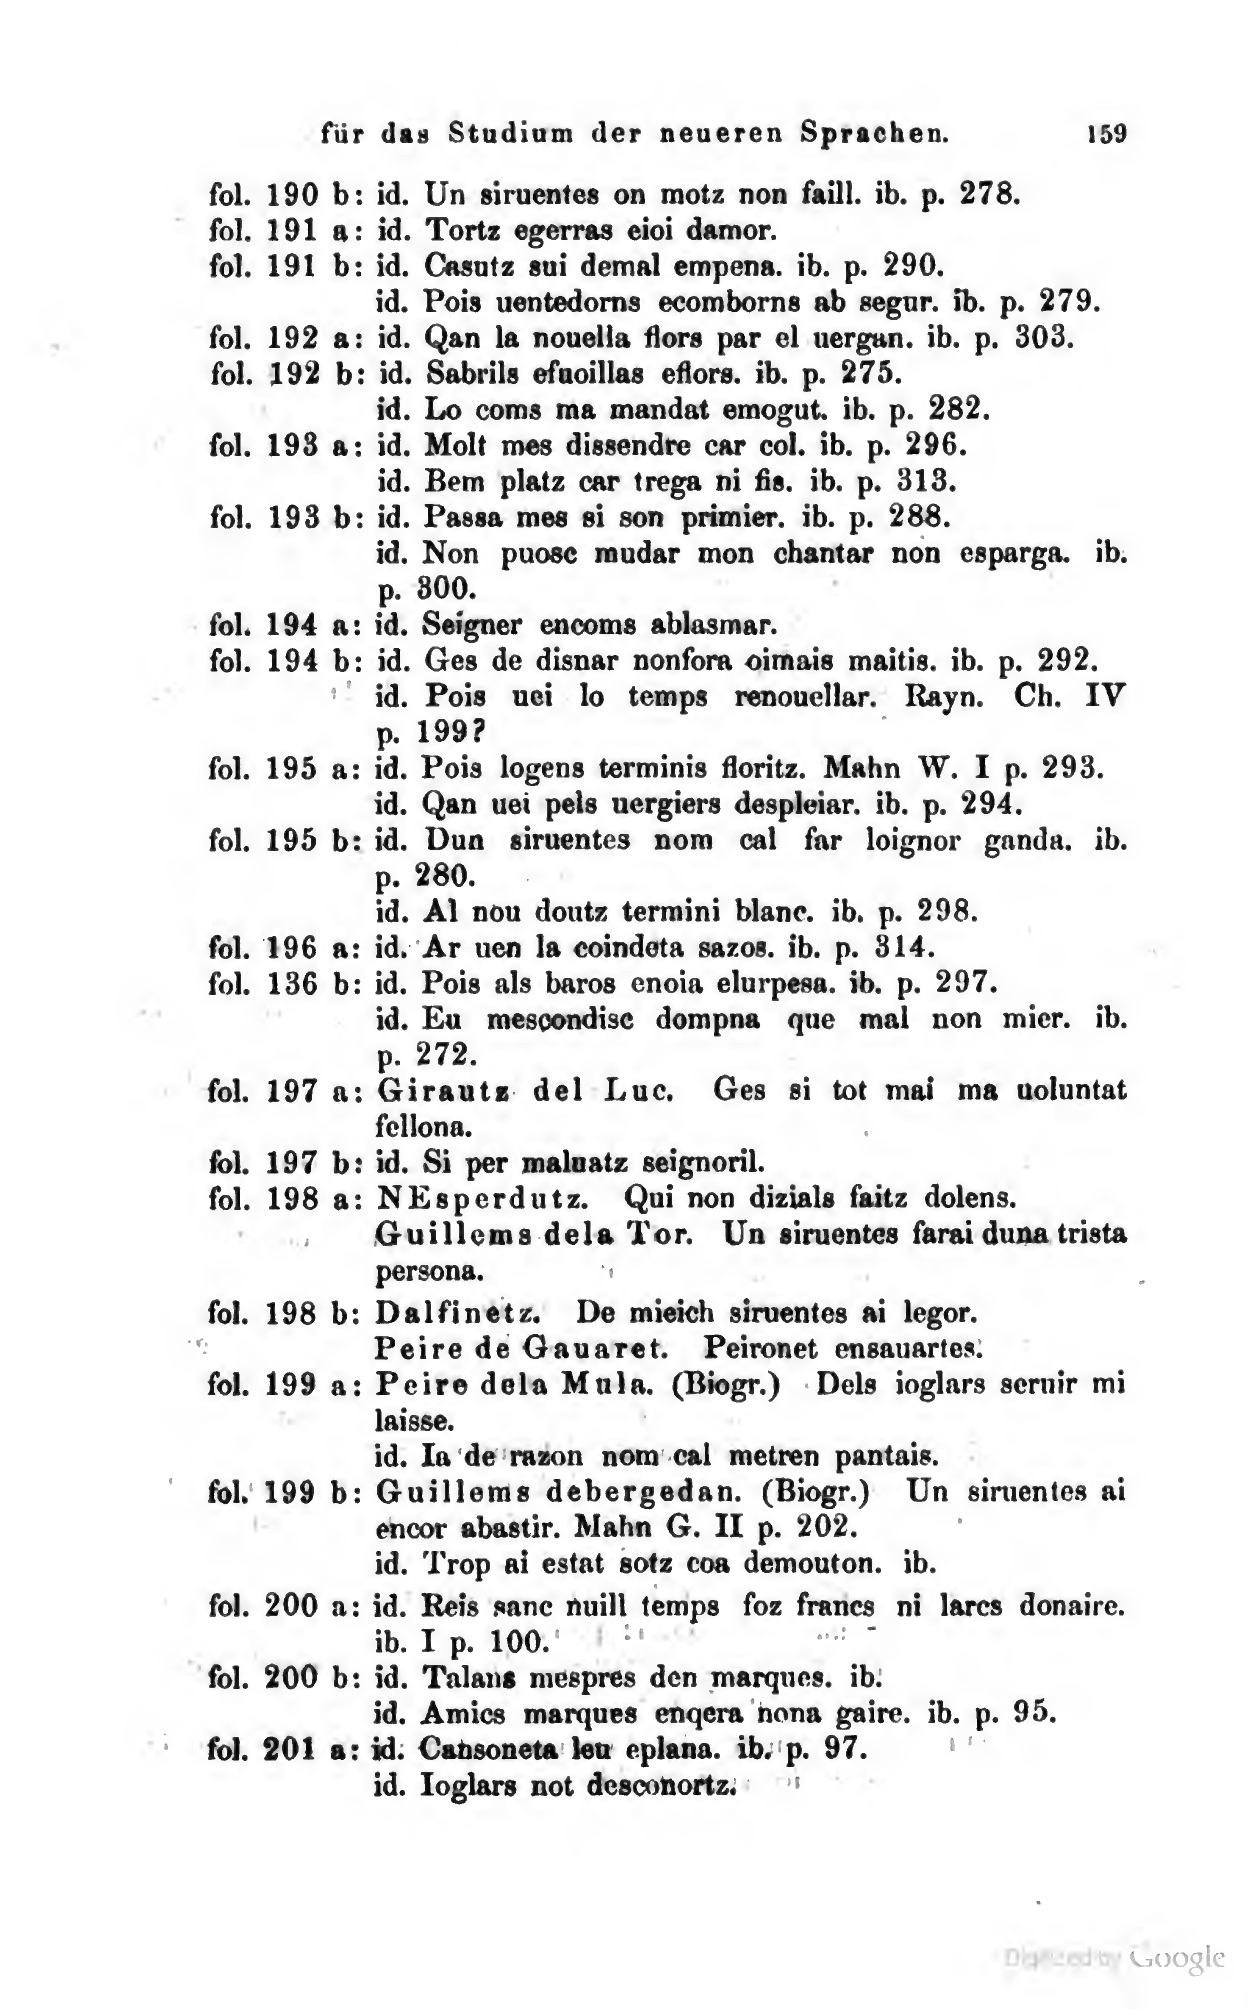 für das Studium der neueren Sprachen. 159
fol. 190 b: id. Un siruentes on motz non faill. ib. p. 278.
fol. 191 a: id. Tortz egerras eioi damor.
fol. 191 b: id. Casutz sui demal empena. ib. p. 290.
id. Pois uentedorns ecomborns ab segur. ib. p. 279.
fol. 192 a: id. Qan la nouella flors par el uergan. ib. p. 303.
fol. 192 b: id. Sabrils efuoillas eflors. ib. p. 275.
id. Lo coms ma mandat emogut. ib. p. 282.
fol. 193 a: id. Molt mes dissendre car col. ib. p. 296.
id. Bem platz car trega ni fis. ib. p. 313.
fol. 193 b: id. Passa mes si son primier. ib. p. 288.
id. Non puosc mudar mon chantar non esparga. ib.
p. 300.
fol. 194 a: id. Seigner encoms ablasmar.
fol. 194 b: id. Ges de disnar nonfora oimais maitis. ib. p. 292.
id. Pois uei lo temps renouellar. Rayn. Ch. IV
p. 199?
fol. 195 a: id. Pois logens terminis floritz. Mahn W. I p. 293.
id. Qan uei pels uergiers despleiar. ib. p. 294.
fol. 195 b: id. Dun siruentes nom cal far loignor ganda. ib.
p. 280.
id. Al nou doutz termini blanc. ib. p. 298.
fol. 196 a: id. Ar uen la coindeta sazos. ib. p. 314.
fol. 136 b: id. Pois als baros enoia elurpesa. ib. p. 297.
id. Eu mescondisc dompna que mal non mier. ib.
p. 272.
fol. 197 a: Girautz del Luc. Ges si tot mai ma uoluntat
fellona.
fol. 197 b: id. Si per maluatz seignoril.
fol. 198 a: NEsperdutz. Qui non dizials faitz dolens.
Guillems dela Tor. Un siruentes farai duna trista
persona.
fol. 198 b: Dalfinetz. De mieich siruentes ai legor.
Peire de Gauaret. Peironet ensauartes.
fol. 199 a: Peire dela Mula. (Biogr.) Dels ioglars seruir mi
laisse.
id. Ia de razon nom cal metren pantais.
fol. 199 b: Guillems debergedan. (Biogr.) Un siruentes ai
encor abastir. Mahn G. II p. 202.
id. Trop ai estat sotz coa demouton. ib.
fol. 200 a: id. Reis sanc nuill temps foz francs ni larcs donaire.
ib. I p. 100.
fol. 200 b: id. Talans mespres den marques. ib.
id. Amics marques enqera nona gaire. ib. p. 95.
fol. 201 a: id. Cansoneta leu eplana. ib. p. 97.
id. Ioglars not desconortz.
Digitized by Google